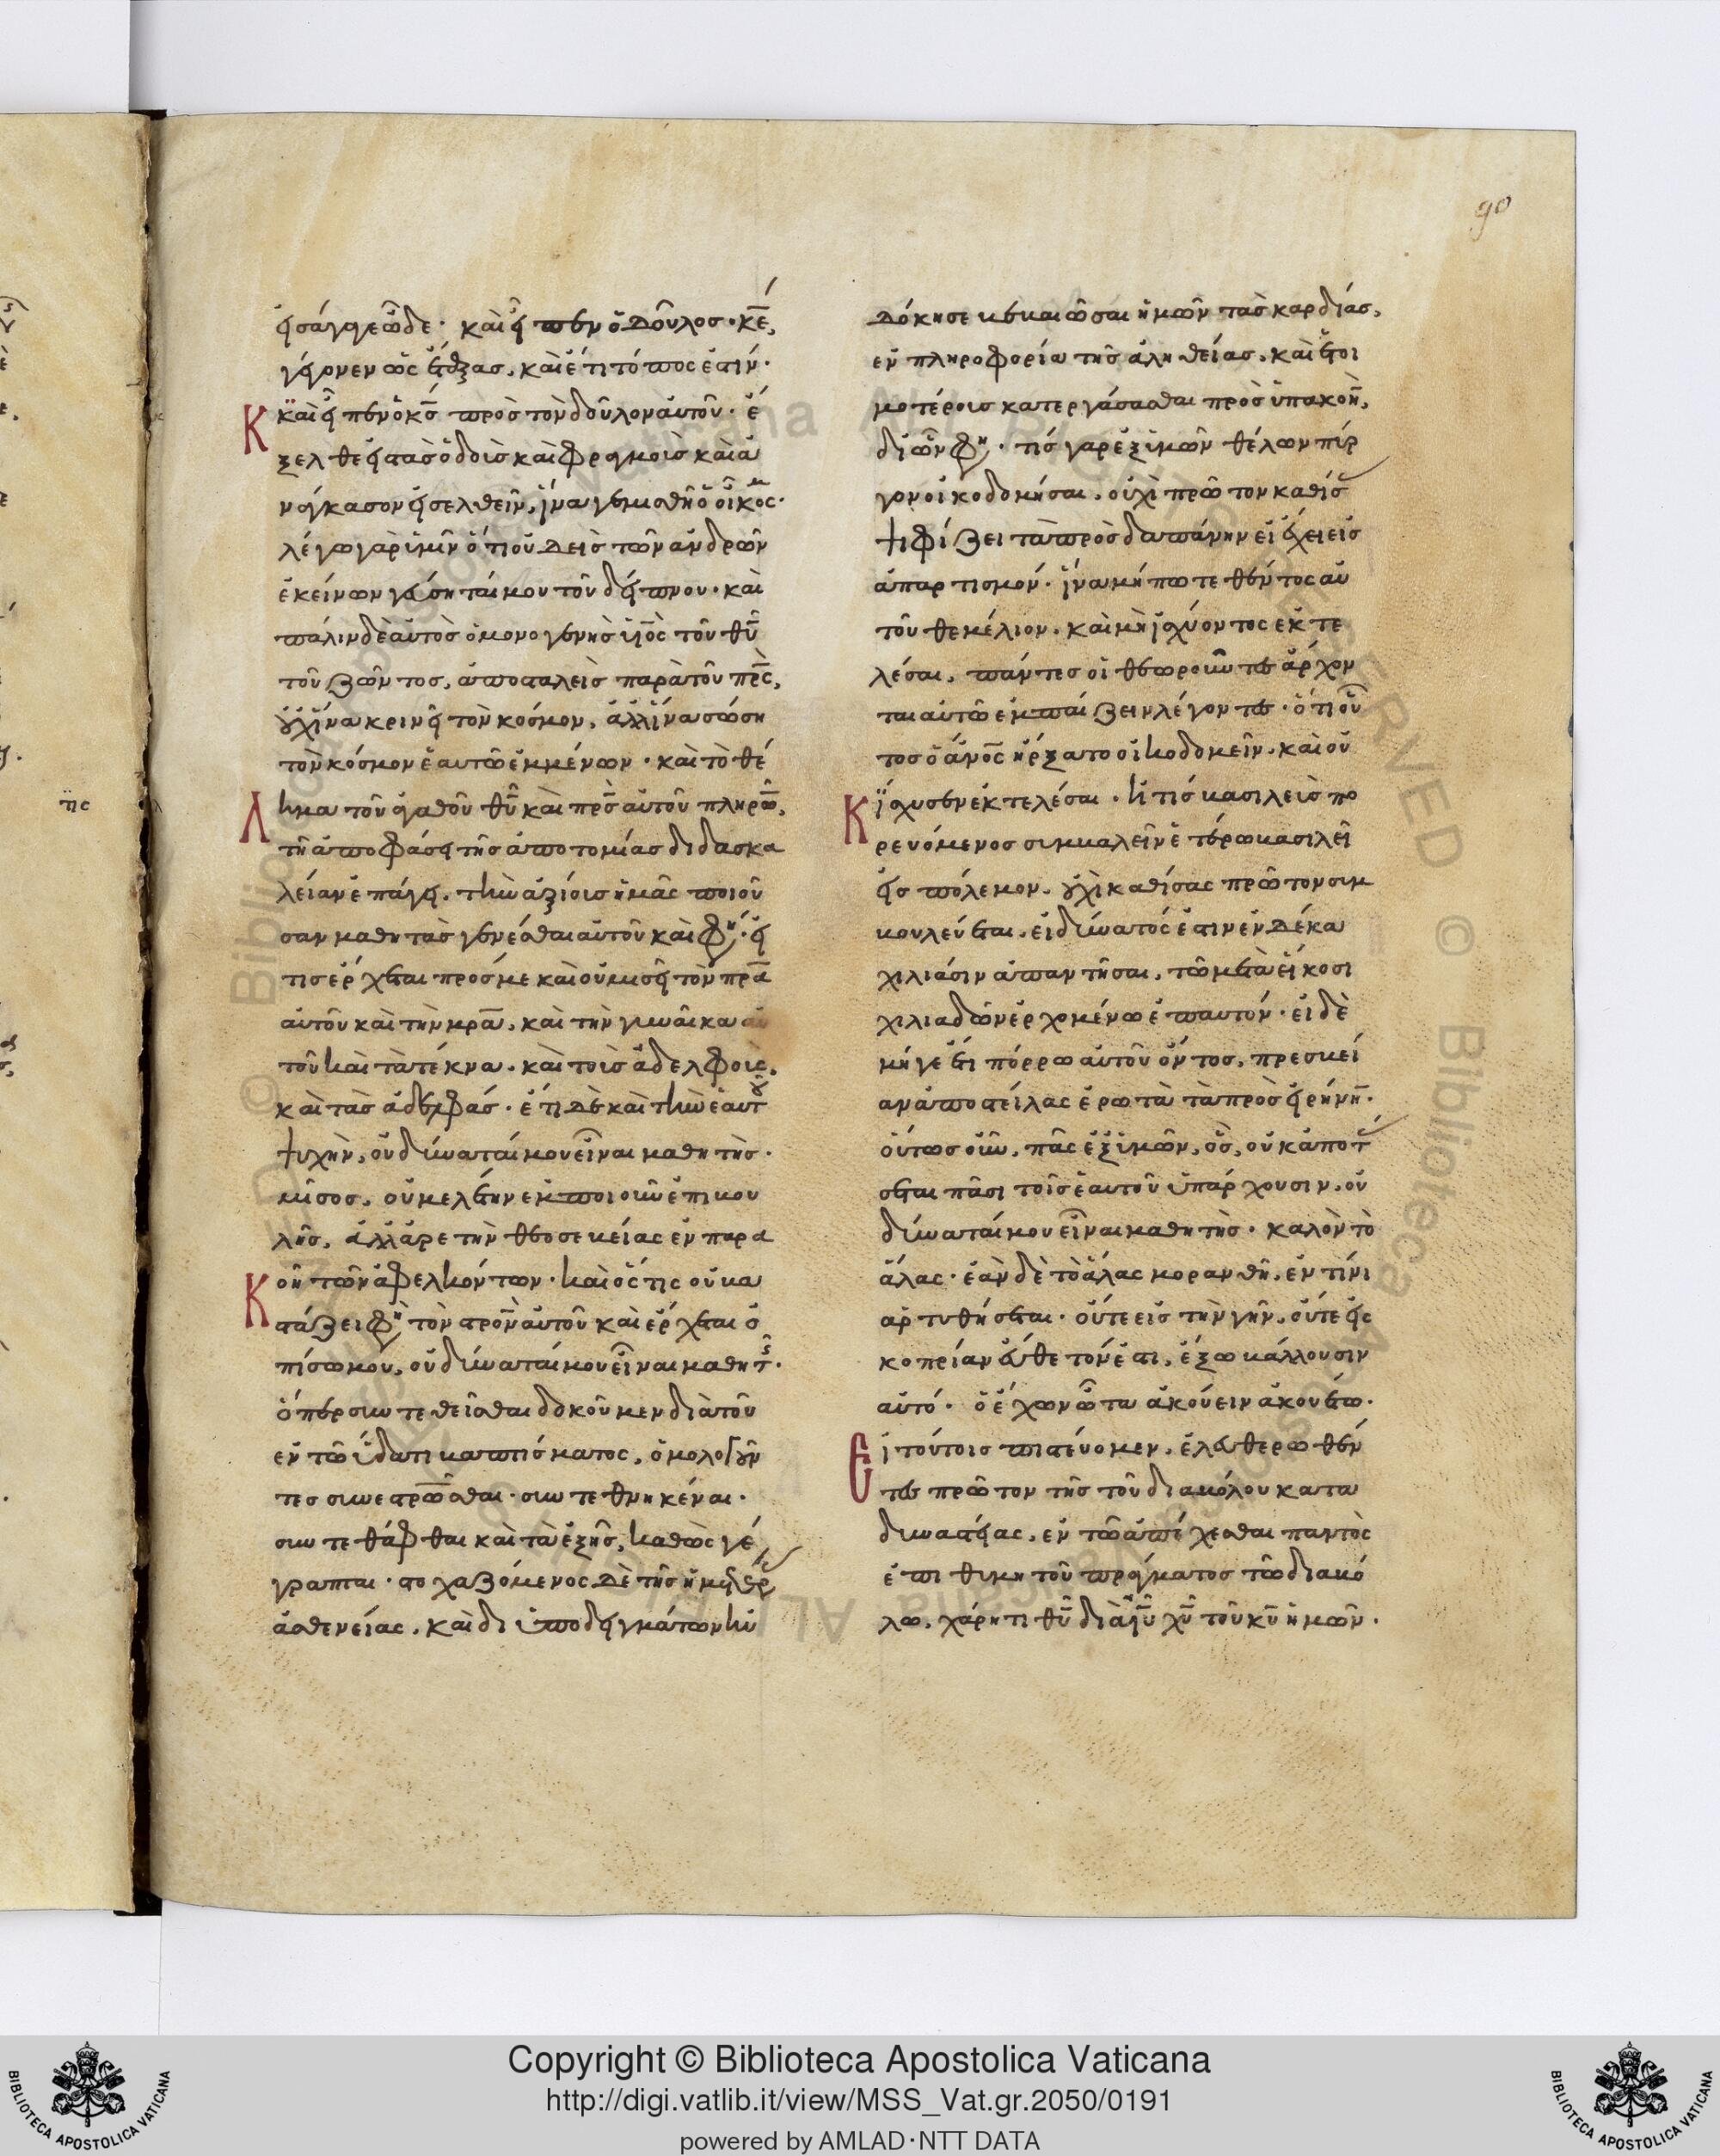 90
εἰσάγαγε ὧδε· καὶ εἶπεν ὁ δοῦλος· κε̅,
γέγονεν ὡς ἐπέταξας, καὶ ἔτι τόπος ἐστίν·
Κ καὶ εἶπεν ὁ κς̅ πρὸς τὸν δοῦλον αὐτοῦ· ἔ
ξελθε εἰς τὰς ὁδοὺς καὶ φραγμοὺς καὶ ἀ
νάγκασον εἰσελθεῖν, ἵνα γεμισθῇ ὁ οἶκός μου·
λέγω γὰρ ὑμῖν ὅτι οὐδεὶς τῶν ἀνδρῶν
ἐκείνων γεύσηταί μου τοῦ δείπνου· καὶ
πάλιν δὲ αὐτὸς ὁ μονογενὴς υἱὸς τοῦ θυ̅
τοῦ ζῶντος, ἀποσταλεὶς παρὰ τοῦ πρς̅,
οὐχ ἵνα κρινεῖ τὸν κόσμον, ἀλλ' ἵνα σώση
τὸν κόσμον ἑαυτῷ ἐμμένων· καὶ τὸ θέ
Λ λημα τοῦ ἀγαθοῦ θυ̅ καὶ πρς̅ αὐτοῦ πληρῶν,
τῇ ἀποφάσει τῆς ἀποτομίας διδασκα
λείαν ἐπάγει, τὴν ἀξίοις ἡμᾶς ποιοῦ
σαν μαθητὰς γενέσθαι αὐτοῦ καὶ φη· εἴ
τις ἔρχεται πρός με καὶ οὐ μισεῖ τὸν πρα̅
αὐτοῦ καὶ τὴν μρα̅, καὶ τὴν γυναῖκα αὐ
τοῦ καὶ τὰ τέκνα, καὶ τοὺς ἀδελφοὺς,
καὶ τὰς ἀδελφάς· ἔτι δὲ καὶ τὴν ἑαυτοῦ
ψυχὴν, οὐ δύναταί μου εἶναι μαθητὴς·
μῖσος, οὐ μελέτην ἐμποιοῦν ἐπιβου
λῆς, ἀλλ' ἀρετὴν θεοσεβείας ἐν παρα
Κ οῇ τῶν ἀφελκόντων· καὶ ὅς τις οὐ βα
στάζει φη τὸν στρο̅ν αὐτοῦ καὶ ἔρχεται ὀ
πίσω μου, οὐ δύναταί μου εἶναι μαθητής·
ὅπερ συντεθεῖσθαι δοκοῦμεν διὰ τοῦ
ἐν τῷ ὕδατι βαπτίσματος, ὁμολογοῦν
τες συνεστρῶσθαι· συντεθνηκέναι·
συντεθάφθαι καὶ τὰ ἑξῆς, καθὼς γέ
γραπται· στοχαζόμενος δὲ τῆς ἡμετέρας
ἀσθενείας, καὶ δι' ὑποδειγμάτων ηὐ
δόκησε βεβαιῶσαι ἡμῶν τὰς καρδίας,
ἐν πληροφορίᾳ τῆς ἀληθείας, καὶ ἑτοι
μοτέρους κατεργάσασθαι πρὸς ὑπακοὴν,
δι' ὧν φη· τίς γὰρ ἐξ ὑμῶν θέλων πύρ
γον οἰκοδομῆσαι, οὐχὶ πρῶτον καθίσας
ψηφίζει τὰ πρὸς δαπάνην εἰ ἔχει εἰς
ἀπαρτισμόν· ἵνα μήποτε θέντος αὐ
τοῦ θεμέλιον, καὶ μὴ ἰσχύοντος ἐκτε
λέσαι, πάντες οἱ θεωροῦντες ἄρχον
ται αὐτῷ ἐμπαίζειν λέγοντες· ὅτι οὗ
τος ὁ ἀν̅ος ἤρξατο οἰκοδομεῖν, καὶ οὐ
Κ ἴσχυσεν ἐκτελέσαι. ἢ τίς βασιλεὺς πο
ρευόμενος συμβαλεῖν ἑτέρῳ βασιλεῖ
εἰς πόλεμον, οὐχὶ καθίσας πρῶτον συμ
βουλεύεται, εἰ δύνατός ἐστιν ἐν δέκα
χιλιάσιν ἀπαντῆσαι, τῷ μετὰ εἴκοσι
χιλιάδων ἐρχομένῳ ἐπ' αὐτόν· εἰ δὲ
μήγε ἔτι πόρρω αὐτοῦ ὄντος, πρεσβεί
αν ἀποστείλας ἐρωτᾷ τὰ πρὸς εἰρήνην·
οὕτως οὖν, πᾶς ἐξ ὑμῶν, ὃς, οὐκ ἀποτάσ
σεται πᾶσι τοῖς ἑαυτοῦ ὑπάρχουσιν, οὐ
δύναταί μου εἶναι μαθητὴς· καλὸν τὸ
ἅλας· ἐὰν δὲ τὸ ἅλας μορανθῇ, ἐν τίνι
ἀρτυθήσεται· οὔτε εἰς τὴν γῆν, οὔτε εἰς
κοπρίαν εὔθετόν ἐστι, ἔξω βάλλουσιν
αὐτό· ὁ ἔχων ὦτα ἀκούειν ἀκουέτω·
Ε ἰ τούτοις πιστεύομεν, ἐλευθερωθέν
τες πρῶτον τῆς τοῦ διαβόλου κατα
δυναστείας, ἐν τῷ ἀπέχεσθαι παντὸς
ἐπιθυμητοῦ πράγματος τῷ διαβό
λω, χάριτι θυ̅ διὰ ιυ̅ χυ̅ τοῦ κυ̅ ἡμῶν·
© Biblioteca Apostolica Vaticana ALL RIGHTS RESERVED
Copyright © Biblioteca Apostolica Vaticana
http://digi.vatlib.it/view/MSS_Vat.gr.2050/0191
powered by AMLAD·NTT DATA
BIBLIOTECA APOSTOLICA VATICANA
BIBLIOTECA APOSTOLICA VATICANA